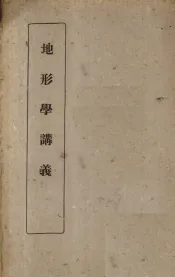 地形學講義